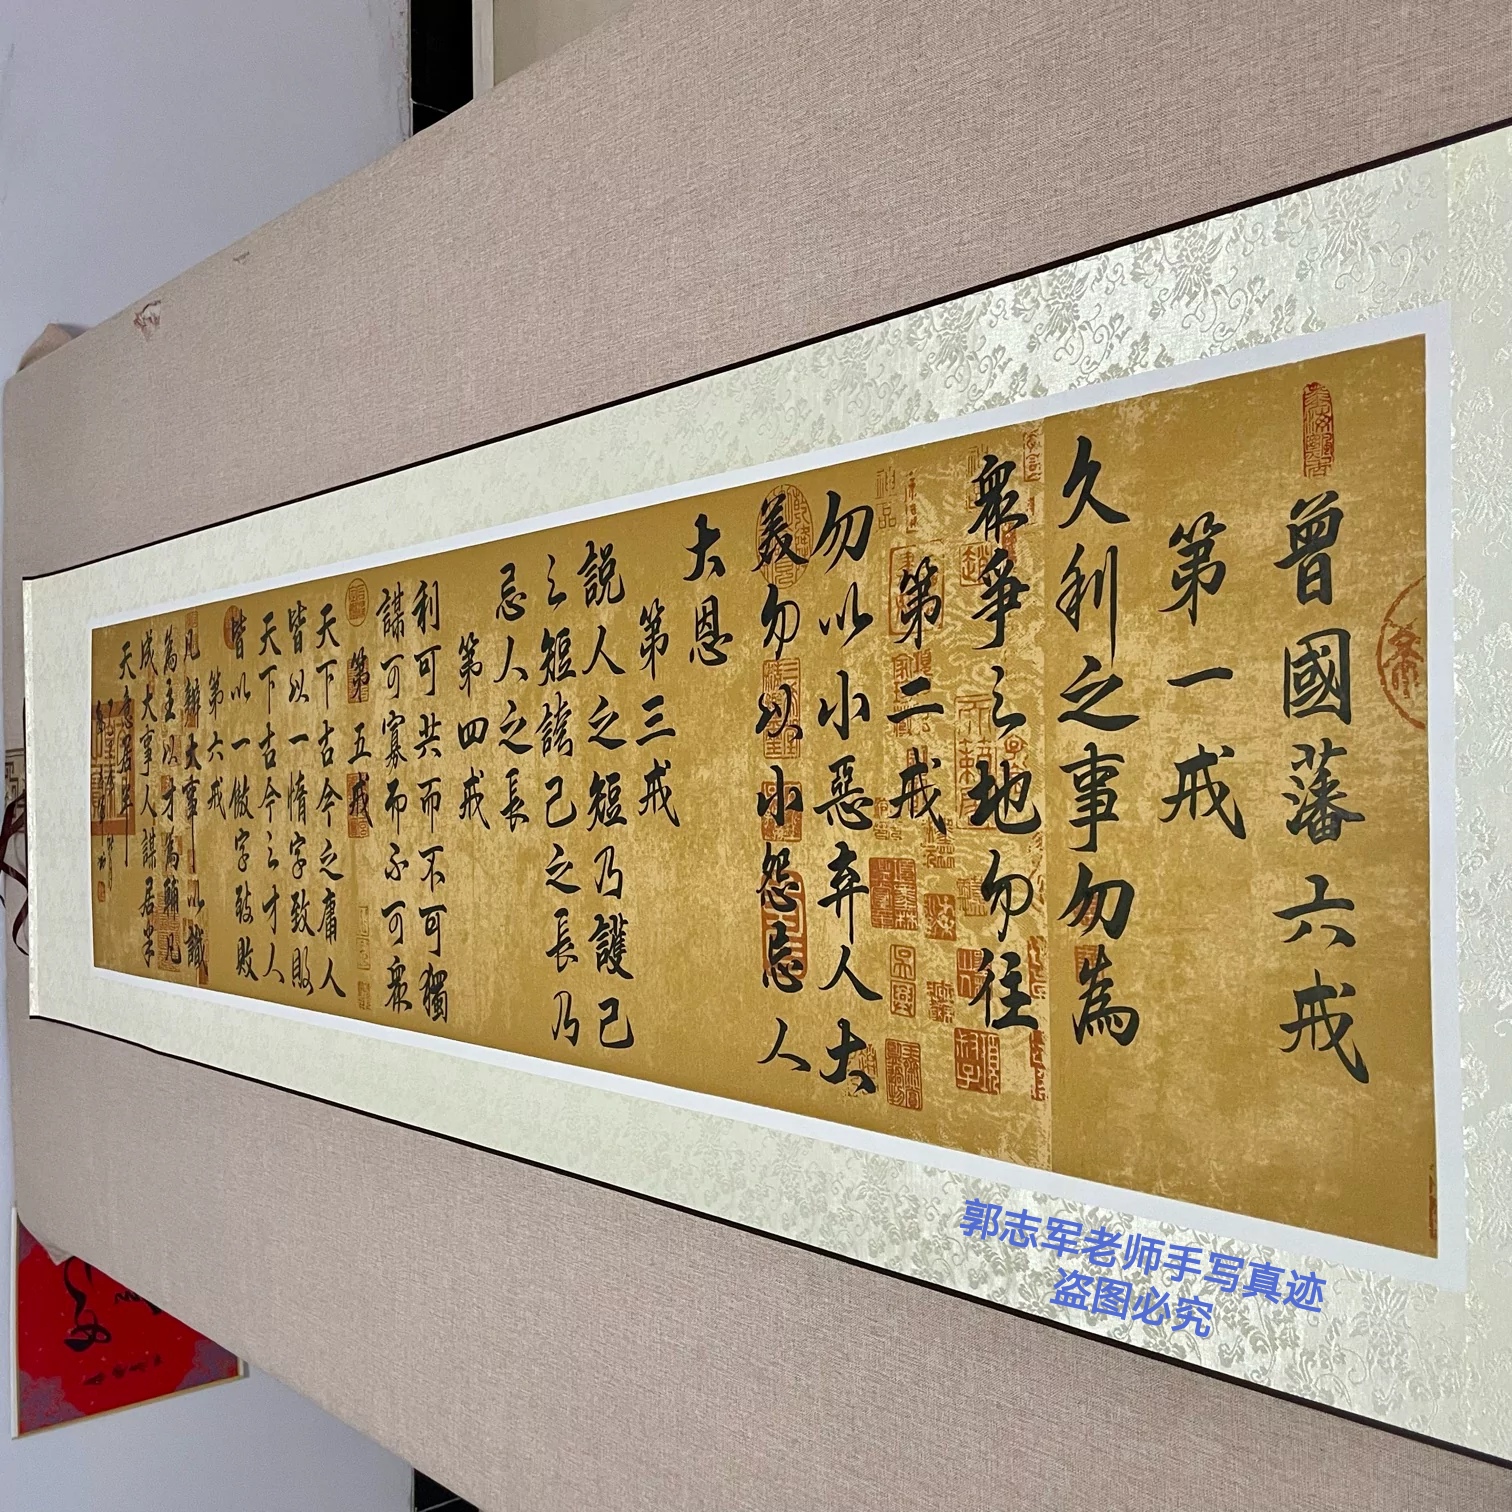 曾國藩六戒
第一戒
久利之事勿為
眾爭之地勿往
第二戒
勿以小惡弃人大
美勿以小怨忘人
大恩
第三戒
説人之短乃護己
之短誇己之長乃
忌人之長
第四戒
利可共而不可獨
謀可寡而不可眾
第五戒
天下古今之庸人
皆以一惰字致敗
天下古今之才人
皆以一傲字致敗
第六戒
凡辦大事以識
為主以才為輔凡
成大事人謀居半
天意居半
郭志军老师手写真迹
盗图必究